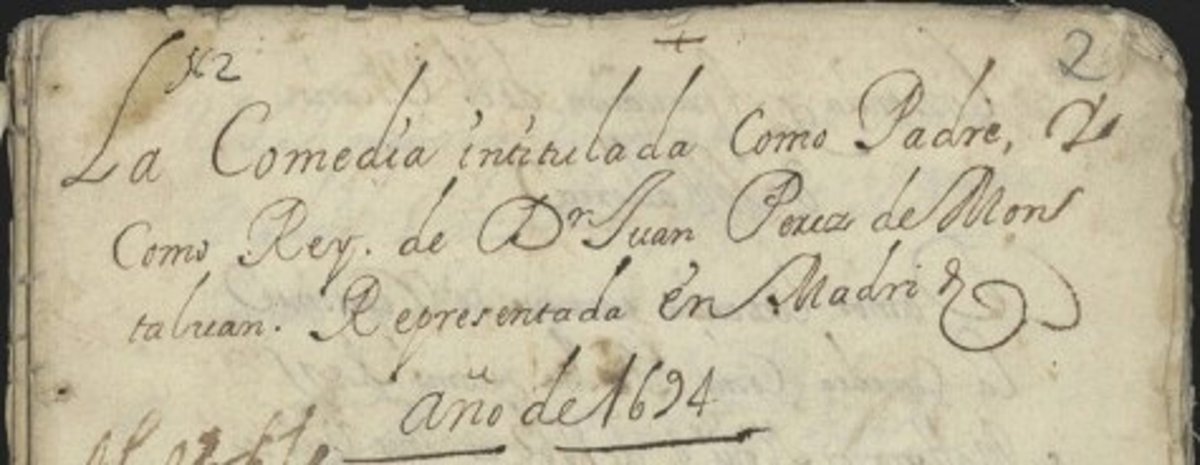 2
La Comedia intitulada Como Padre, y
Como Rey. de Dr Juan Perez de Mon
taluan. Representada en Madrid
año de 1694